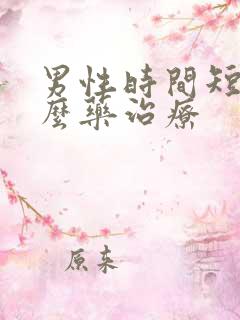 男性時間短
麼藥治療
原来